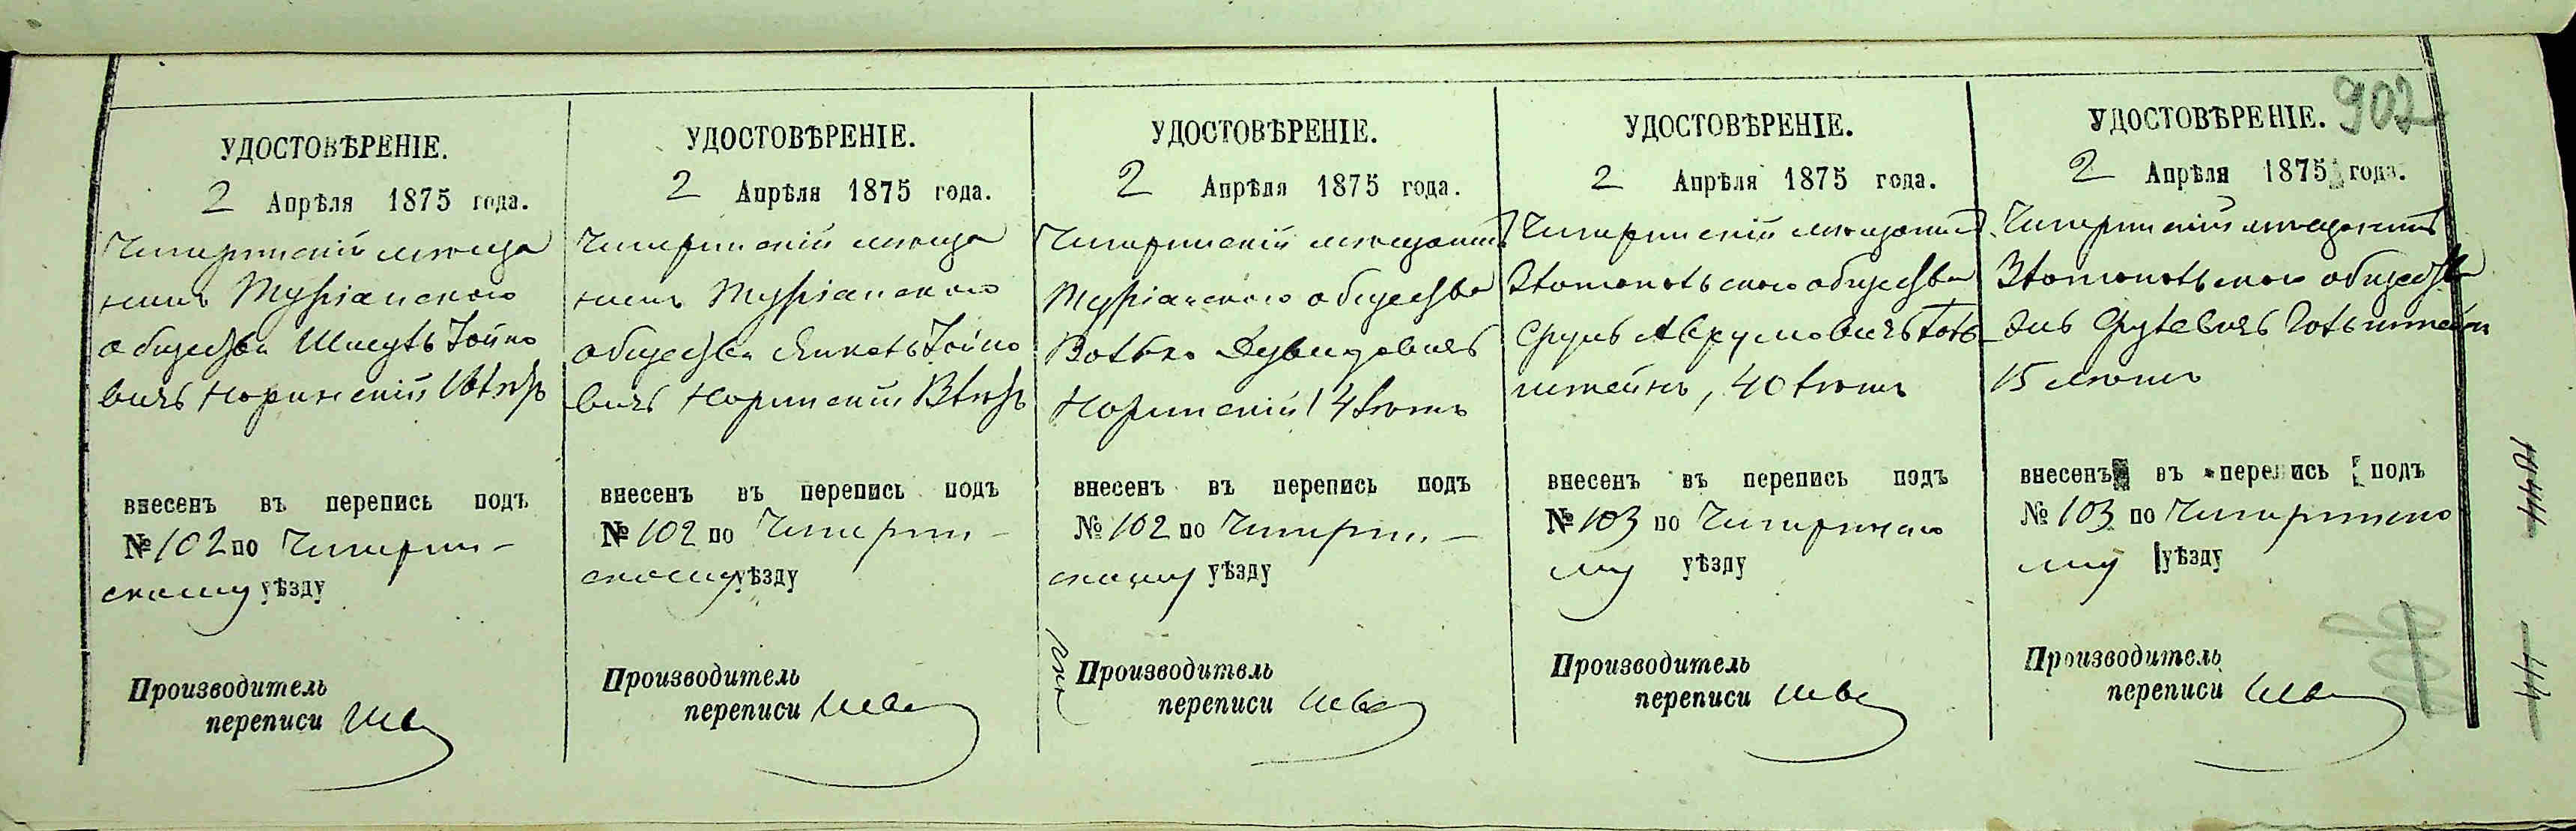 902
УДОСТОВѢРЕНІЕ.
2 Апрѣля 1875 года.
Чигиринскій мѣща
нинъ Туріанскаго
общества Шмуль Іойно
вичъ Норинскій
внесенъ въ перепись подъ
№ 102 по Чигирин-
скому уѣзду
Производитель
переписи
УДОСТОВѢРЕНІЕ.
2 Апрѣля 1875 года.
Чигиринскій мѣща
нинъ Туріанскаго
общества Янкель Іойно
вичъ Норинскій
внесенъ въ перепись подъ
№ 102 по Чигирин-
скому уѣзду
Производитель
переписи
УДОСТОВѢРЕНІЕ.
2 Апрѣля 1875 года.
Чигиринскій мѣщанинъ
Туріанскаго общества
Волько Дувидовичъ
Норинскій 14 лѣтъ
внесенъ въ перепись подъ
№ 102 по Чигирин-
скому уѣзду
Производитель
переписи
УДОСТОВѢРЕНІЕ.
2 Апрѣля 1875 года.
Чигиринскій мѣщанинъ
Златопольскаго общества
Сруль АврумовичъГоль
штейнъ, 40 лѣтъ
внесенъ въ перепись подъ
№ 103 по Чигиринско
му уѣзду
Производитель
переписи
УДОСТОВѢРЕНІЕ.
2 Апрѣля 1875 года.
Чигиринскій мѣщанинъ
Златопольскаго общества
Срулевичъ Гольштейн
15 лѣтъ
внесенъ въ перепись подъ
№ 103 по Чигиринско
му уѣзду
Производитель
переписи